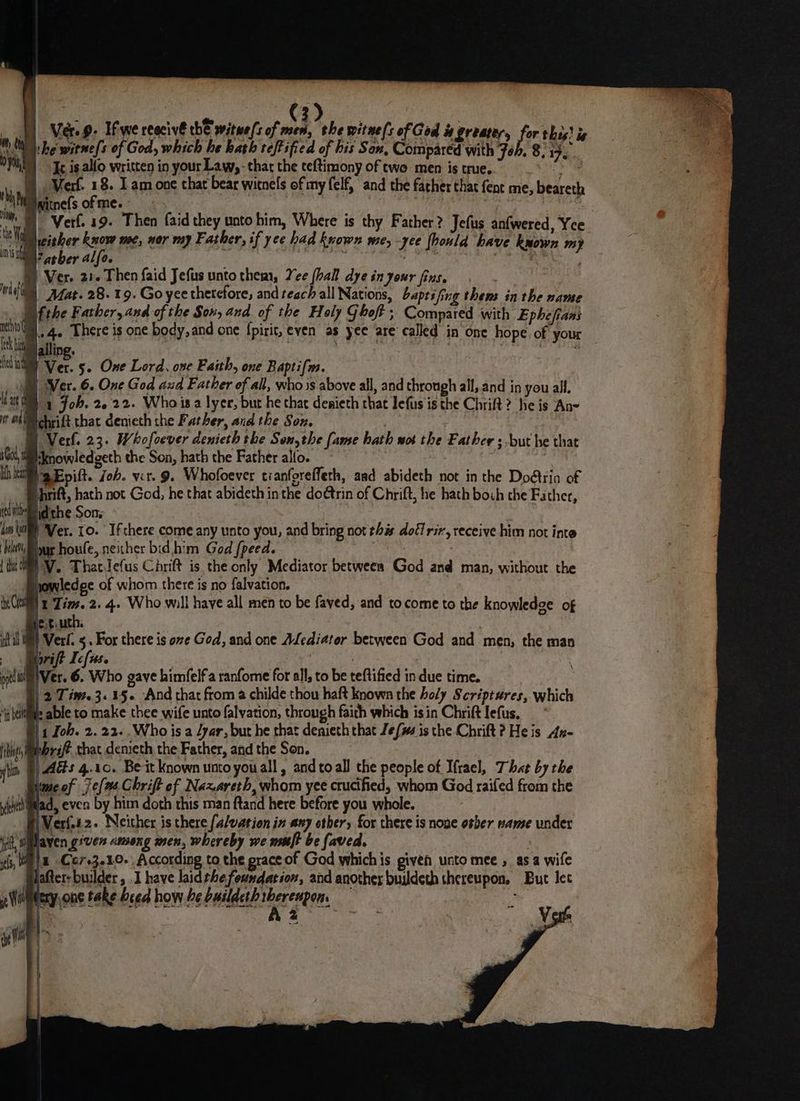 (3)
Ver. 9. If we receive the witneſs of men, the witneſs of God is greater, for this is
the witneſs of God, which he hath teſtified of his Son, Compared with Joh. 8. 17.
It is alſo written in your Law, that the teſtimony of two men is true.
Verſ. 18. I am one that bear witneſs of my ſelf, and the father that ſent me, beareth
witneſs of me.
Verſ. 19. Then ſaid they unto him, Where is thy Father? Jeſus anſwered, Yee
neither know me, nor my Father, if yee had known me, yee ſhould have known my
Father alſo.
Ver. 21. Then ſaid Jeſus unto them, Yee ſhall dye in your ſins.
Mat. 28. 19. Go yee therefore, and teach all Nations, baptiſing them in the name
of the Father, and of the Son, and of the Holy Ghoſt; Compared with Epheſians
4. There is one body, and one ſpirit, even as yee are called in one hope of your
calling.
Ver. 5. One Lord, one Faith, one Baptiſm.
Ver. 6. One God and Father of all, who is above all, and through all, and in you all.
1 Joh. 2. 22. Who is a lyer, but he that denieth that Ieſus is the Chriſt? he is An-
chriſt that denieth the Father, and the Son.
Verſ. 23. Whoſoever denieth the Son, the ſame hath not the Father; but he that
knowledgeth the Son, hath the Father alſo.
2 Epiſt. Joh. ver. 9. Whoſoever tranſgreſſeth, and abideth not in the Doctrin of
Chriſt, hath not God, he that abideth in the doctrin of Chriſt, he hath both the Father,
and the Son.
Ver. 10. If there come any unto you, and bring not this doctrin, receive him not into
your houſe, neither bid him God ſpeed.
V. That Ieſus Chriſt is the only Mediator between God and man, without the
knowledge of whom there is no ſalvation.
1 Tim. 2. 4. Who will have all men to be ſaved, and to come to the knowledge of
the truth.
Verſ. 5. For there is one God, and one Mediator between God and men, the man
Chriſt Ieſus.
Ver. 6. Who gave himſelf a ranſome for all, to be teſtified in due time.
2 Tim. 3. 15. And that from a childe thou haſt known the holy Scriptures, which
be able to make thee wiſe unto ſalvation, through faith which is in Chriſt Ieſus.
1 Ioh. 2. 22. Who is a lyar, but he that denieth that Ieſus is the Chriſt? He is An-
chriſt that denieth the Father, and the Son.
Acts 4. 10. Be it known unto you all, and to all the people of Iſrael, That by the
name of Jeſus Chriſt of Nazareth, whom yee crucified, whom God raiſed from the
dead, even by him doth this man ſtand here before you whole.
Verſ. 12. Neither is there ſalvation in any other, for there is none other name under
heaven given among men, whereby we muſt be ſaved.
1 Cor. 3. 10. According to the grace of God which is given unto mee, as a wiſe
Maſter-builder, I have laid the foundation, and another buildeth thereupon. But let
every one take heed how he buildeth thereupon.
A 2
Verſ.